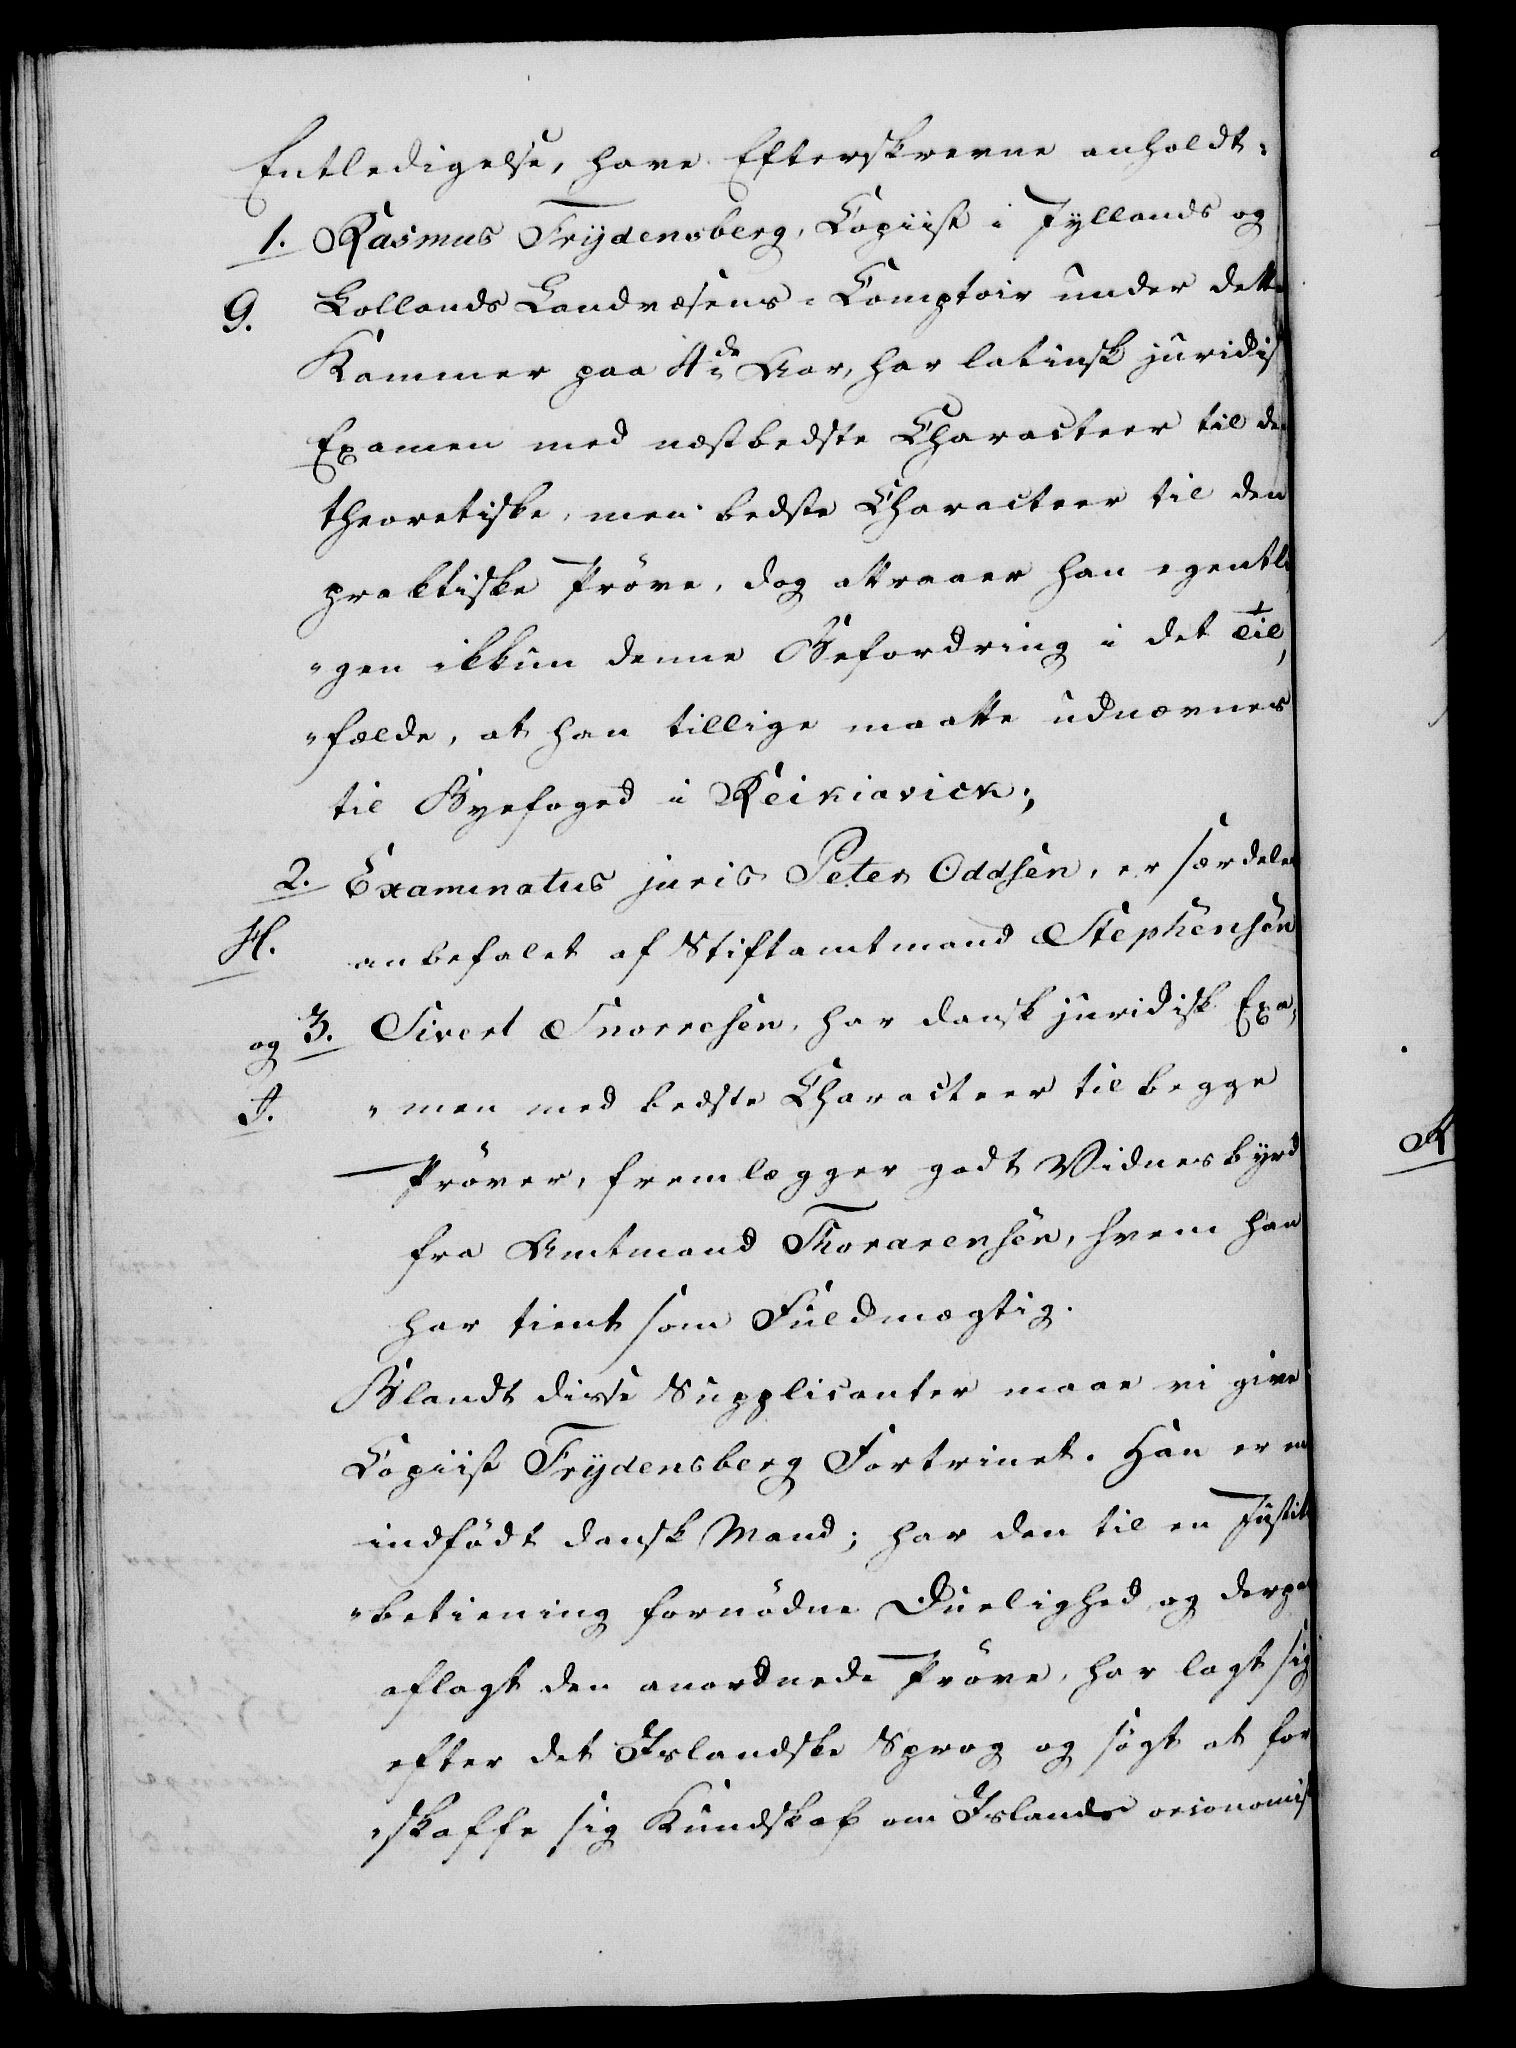 Entledigelse, have Efterskrevne anholdt:
1. Rasmus Frydensberg, Copiist i Jyllands og
G. Lollands Landvæsens-Comptoir under dette
Kammer paa 4de Aar, har latinsk juridis
Examen med næstbedste Characteer til de
theoretiske, men bedste Characteer til den
praktiske Prøve, dog attraaer han egentli
"gen ikkun denne Befordring i det Til,
"fælde, at han tillige maatte udnævnes
til Byefoged i Reikiavick;
2. Examinatus juris Peter Oddsen, er særdeles
H. anbefalet af Stiftamtmand Stephensen
og 3. Sivert Snorresen, har dansk juridisk Exa,
I. "men med bedste Characteer til begge
Prøver, fremlægger godt Vidnesbyrd
fra Amtmand Thorarensen, hvem han
har tient som Fuldmægtig.
Blandt disse Supplicanter maae vi give
Copiist Frydensberg Fortrinet. Han er en
indfødt dansk Mand; har den til en Justit
"betiening fornødne Duelighed og derpaa
aflagt den anordnede Prøve, har lagt sig
efter det Islandske Sprog og søgt at for
"skaffe sig Kundskab om Islands oeconomis
K